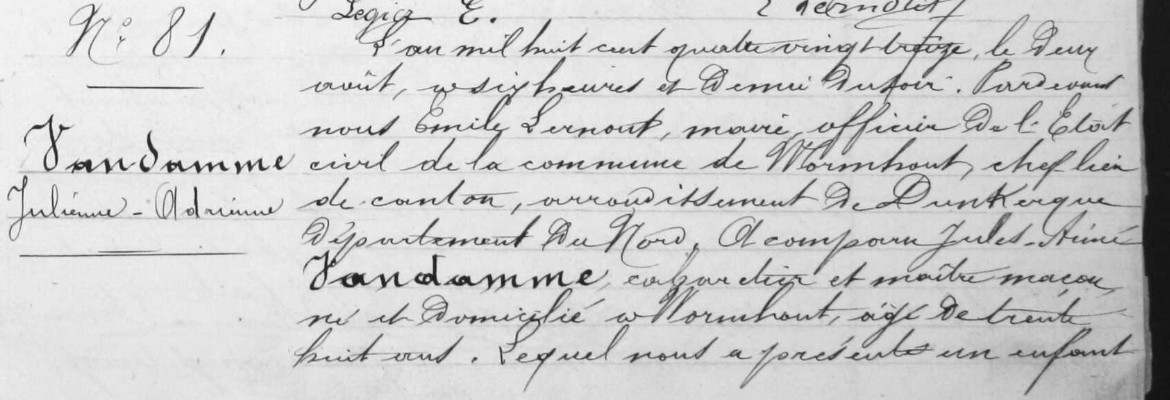 N° 81.
Vandamme
Julienne - Adrienne
L'an mil huit cent quatre vingt treize, le deux
août, à six heures et demie du soir. Pardevant
nous Emile Lernout, maire, officier de l'Etat
civil de la commune de Wormhout, chef lieu
de canton, arrondissement de Dunkerque
département du Nord, A comparu Jules-Aimé
Vandamme, cabaretier et maître maçon,
né et domicilié à Wormhout, âgé de trente
huit ans. Lequel nous a présenté un enfant